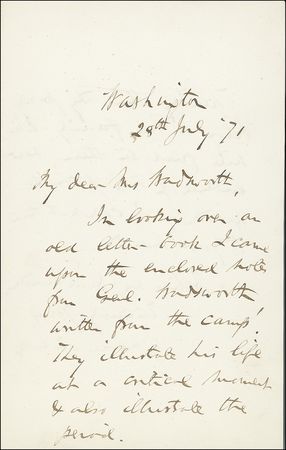 Washington
28th July '71
My dear Mrs Wadsworth,
In looking over an
old letter-book I came
upon the enclosed notes
from Genl. Wadsworth,
written from the camp.
They illustrate his life
at a critical moment
& also illustrate the
period.